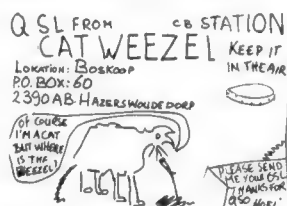 QSL FROM CB STATION
CATWEEZEL
KEEP IT
IN THE AIR
LOKATION: BOSKOOP
P.O. BOX: 60
2390 AB HAZERSWOUDE DORP
OF COURSE
I'M A CAT
BUT WHERE
IS THE
WEEZEL?
PLEASE SEND
ME YOUR QSL
THANKS FOR
QSO